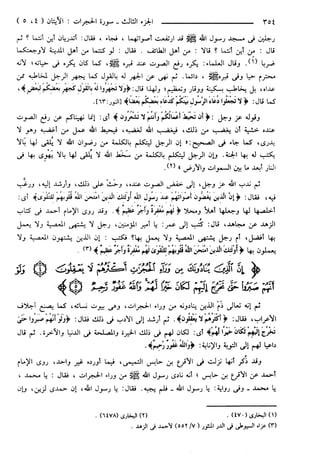 ٣٥٤ الجزء الثالث - سورة الحجرات : الآيتان (٤ ، ٥)
رجلين في مسجد رسول الله ﷺ قد ارتفعت أصواتهما ، فجاء ، فقال : أتدريان أين أنتما ؟ ثم
قال : من أين أنتما ؟ قالا : من أهل الطائف . فقال : لو كنتما من أهل المدينة لأوجعتكما
ضربا (١). وقال العلماء: يكره رفع الصوت عند قبره ﷺ، كما كان يكره في حياته؛ لأنه
محترم حيا وفي قبره ﷺ، دائما. ثم نهى عن الجهر له بالقول كما يجهر الرجل لمخاطبه ممن
عداه، بل يخاطب بسكينة ووقار وتعظيم؛ ولهذا قال: ﴿وَلَا تَجْهَرُوا لَهُ بِالْقَوْلِ كَجَهْرِ بَعْضِكُمْ لِبَعْضٍ﴾،
كما قال: ﴿ لا تَجْعَلُوا دُعَاءَ الرَّسُولِ بَيْنَكُمْ كَدُعَاءِ بَعْضِكُم بَعْضًا﴾ [النور:٦٣].
وقوله عز وجل : ﴿ أَن تَحْبَطَ أَعْمَالُكُمْ وَأَنتُمْ لا تَشْعُرُونَ ﴾ أي: إنما نهيناكم عن رفع الصوت
عنده خشية أن يغضب من ذلك، فيغضب الله لغضبه، فيحبط الله عمل من أغضبه وهو لا
يدرى، كما جاء في الصحيح: إن الرجل ليتكلم بالكلمة من رضوان الله لا يُلقى لها بالا
يكتب له بها الجنة. وإن الرجل ليتكلم بالكلمة من سَخَط الله لا يلقى لها بالا يهوى بها في
النار أبعد ما بين السموات والأرض » (٢).
ثم ندب الله عز وجل، إلى خفض الصوت عنده، وحَثّ على ذلك، وأرشد إليه، ورغَّب
فيه، فقال: ﴿ إِنَّ الَّذِينَ يَغُضُّونَ أَصْوَاتَهُمْ عِندَ رَسُولِ اللهِ أُولَئِكَ الَّذِينَ امْتَحَنَ اللهُ قُلُوبَهُمْ لِلتَّقْوَى﴾ أي:
أخلصها لها وجعلها أهلا ومحلا ﴿ لَهُم مَّغْفِرَةٌ وَأَجْرٌ عَظِيمٌ ﴾. وقد روى الإمام أحمد في كتاب
الزهد عن مجاهد، قال: كُتب إلى عمر: يا أمير المؤمنين، رجل لا يشتهى المعصية ولا يعمل
بها أفضل، أم رجل يشتهى المعصية ولا يعمل بها؟ فكتب : إن الذين يشتهون المعصية ولا
يعملون بها ﴿ أُولَئِكَ الَّذِينَ امْتَحَنَ اللهُ قُلُوبَهُمْ لِلتَّقْوَى لَهُم مَّغْفِرَةٌ وَأَجْرٌ عَظِيمٌ ﴾ (٣) .
إِنَّ الَّذِينَ يُنَادُونَكَ مِن وَرَاءِ الْحُجُرَاتِ أَكْثَرُهُمْ لَا يَعْقِلُونَ ۝ وَلَوْ أَنَّهُمْ
صَبَرُوا حَتَّى تَخْرُجَ إِلَيْهِمْ لَكَانَ خَيْرًا لَّهُمْ وَاللَّهُ غَفُورٌ رَّحِيمٌ ۝
ثم إنه تعالى ذَمّ الذين ينادونه من وراء الحجرات، وهي بيوت نسائه، كما يصنع أجلاف
الأعراب، فقال: ﴿ أَكْثَرُهُمْ لا يَعْقِلُونَ ﴾. ثم أرشد إلى الأدب في ذلك فقال: ﴿ وَلَوْ أَنَّهُمْ صَبَرُوا حَتَّى
تَخْرُجَ إِلَيْهِمْ لَكَانَ خَيْرًا لَّهُمْ﴾ أي: لكان لهم في ذلك الخيرة والمصلحة في الدنيا والآخرة. ثم قال
داعيا لهم إلى التوبة والإنابة: ﴿وَاللهُ غَفُورٌ رَّحِيمٌ ﴾.
وقد ذُكر أنها نزلت في الأقرع بن حابس التميمي، فيما أورده غير واحد، روى الإمام
أحمد عن الأقرع بن حابس ؛ أنه نادى رسول الله ﷺ من وراء الحجرات ، فقال : يا محمد ،
يا محمد - وفي رواية: يا رسول الله - فلم يجبه. فقال: يا رسول الله، إن حمدي لزين، وإن
(١) البخاري (٤٧٠) . (٢) البخاري (٦٤٧٨) .
(٣) عزاه السيوطي في الدر المنثور (٧/ ٥٥٢) لأحمد في الزهد .